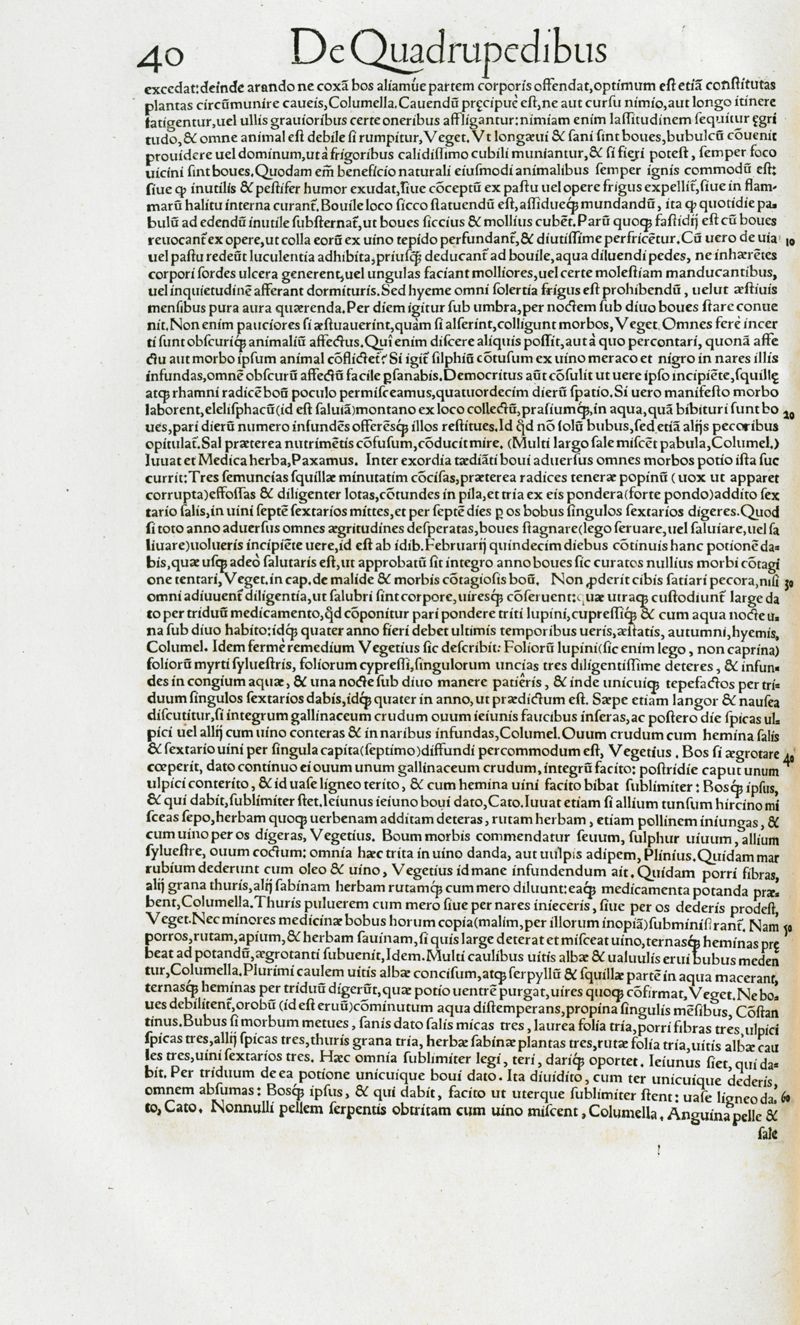 40 De Quadrupedibus
excedat: deinde arando ne coxā bos aliamúe partem corporis offendat, optimum eſt etiā conſtitutas
plantas circūmunire caueis, Columella. Cauendū pręcipuè eſt, ne aut curſu nimio, aut longo itinere
fatigentur, uel ullis grauioribus certe oneribus affligantur: nimiam enim laſſitudinem ſequitur ęgri
tudo, & omne animal eſt debile ſi rumpitur, Veget. Vt longæui & ſani ſint boues, bubulcū cōuenit
prouidere uel dominum, ut à frigoribus calidiſſimo cubili muniantur, & ſi fieri poteſt, ſemper foco
uicini ſint boues. Quodam em̄ beneficio naturali eiuſmodi animalibus ſemper ignis commodū eſt:
ſiue ꝙ inutilis & peſtifer humor exudat, ſiue cōceptū ex paſtu uel opere frigus expellit᷑, ſiue in flam-
marū halitu interna curant᷑. Bouile loco ſicco ſtatuendū eſt, aſſidueꝙ̃ mundandū, ita ꝙ quotidie pa-
bulū ad edendū inutile ſubſternat᷑, ut boues ſiccius & mollius cubēt. Parū quoꝙ̃ faſtidij eſt cū boues
reuocant᷑ ex opere, ut colla eorū ex uino tepido perfundant᷑, & diutiſſime perfricētur. Cū uero de uia 10
uel paſtu redeūt luculentia adhibita, priuſꝙ̃ deducant᷑ ad bouile, aqua diluendi pedes, ne inhærētes
corpori ſordes ulcera generent, uel ungulas faciant molliores, uel certe moleſtiam manducantibus,
uel inquietudinē afferant dormituris. Sed hyeme omni ſolertia frigus eſt prohibendū, uelut æſtiuis
menſibus pura aura quærenda. Per diem igitur ſub umbra, per noctem ſub diuo boues ſtare conue
nit. Non enim pauciores ſi æſtuauerint, quàm ſi alſerint, colligunt morbos, Veget. Omnes ferè incer
ti ſunt obſcuriꝙ̃ animaliū affectus. Qui enim diſcere aliquis poſſit, aut à quo percontari, quonā affe
ctu aut morbo ipſum animal cōflictet᷑? Si igit᷑ ſilphiū cōtuſum ex uino meraco et nigro in nares illis
infundas, omnē obſcurū affectū facile ꝑſanabis. Democritus aūt cōſulit ut uere ipſo incipiēte, ſquillę
atꝙ̃ rhamni radicē boū poculo permiſceamus, quatuordecim dierū ſpatio. Si uero manifeſto morbo
laborent, eleliſphacū (id eſt ſaluiā) montano ex loco collectū, praſiumꝙ̃, in aqua, quā bibituri ſunt bo 20
ues, pari dierū numero infundēs offerēsꝙ̃ illos reſtitues. Id ꝗd nō ſolū bubus, ſed etiā alijs pecoribus
opitulat᷑. Sal præterea nutrimētis cōfuſum, cōducit mire. (Multi largo ſale miſcēt pabula, Columel.)
Iuuat et Medica herba, Paxamus. Inter exordia tædiāti boui aduerſus omnes morbos potio iſta ſuc
currit: Tres ſemuncias ſquillæ minutatim cōciſas, præterea radices teneræ popinū (uox ut apparet
corrupta) effoſſas & diligenter lotas, cōtundes in pila, et tria ex eis pondera (forte pondo) addito ſex
tario ſalis, in uini ſeptē ſextarios mittes, et per ſeptē dies ꝑ os bobus ſingulos ſextarios digeres. Quod
ſi toto anno aduerſus omnes ægritudines deſperatas, boues ſtagnare (lego ſeruare, uel ſaluiare, uel ſa
liuare) uolueris incipiēte uere, id eſt ab idib. Februarij quindecim diebus cōtinuis hanc potionē da-
bis, quæ uſꝙ̃ adeò ſalutaris eſt, ut approbatū ſit integro anno boues ſic curatos nullius morbi cōtagi
one tentari, Veget. in cap. de malide & morbis cōtagioſis boū. Non ꝓderit cibis ſatiari pecora, niſi 30
omni adiuuent᷑ diligentia, ut ſalubri ſint corpore, uiresꝙ̃ cōſeruent: quæ utraꝙ̃ cuſtodiunt᷑ large da
to per triduū medicamento, ꝗd cōponitur pari pondere triti lupini, cupreſſiꝙ̃ & cum aqua nocte u-
na ſub diuo habito: idꝙ̃ quater anno fieri debet ultimis temporibus ueris, æſtatis, autumni, hyemis,
Columel. Idem ferme remedium Vegetius ſic deſcribit: Foliorū lupini (ſic enim lego, non caprina)
foliorū myrti ſylueſtris, foliorum cypreſſi, ſingulorum uncias tres diligentiſſime deteres, & infun-
des in congium aquæ, & una nocte ſub diuo manere patiêris, & inde unicuiꝙ̃ tepefactos per tri-
duum ſingulos ſextarios dabis, idꝙ̃ quater in anno, ut prædictum eſt. Sæpe etiam langor & nauſea
diſcutitur, ſi integrum gallinaceum crudum ouum ieiunis faucibus inſeras, ac poſtero die ſpicas ul-
pici uel allij cum uino conteras & in naribus infundas, Columel. Ouum crudum cum hemina ſalis
& ſextario uini per ſingula capita (ſeptimo) diffundi percommodum eſt, Vegetius. Bos ſi ægrotare 40
cœperit, dato continuo ei ouum unum gallinaceum crudum, integrū facito: poſtridie caput unum
ulpici conterito, & id uaſe ligneo terito, & cum hemina uini facito bibat ſublimiter: Bosꝙ̃ ipſus,
& qui dabit, ſublimiter ſtet. Ieiunus ieiuno boui dato, Cato. Iuuat etiam ſi allium tunſum hircino mi
ſceas ſepo, herbam quoꝙ̃ uerbenam additam deteras, rutam herbam, etiam pollinem iniungas, &
cum uino per os digeras, Vegetius. Boum morbis commendatur ſeuum, ſulphur uiuum, allium
ſylueſtre, ouum coctum: omnia hæc trita in uino danda, aut uulpis adipem, Plinius. Quidam mar
rubium dederunt cum oleo & uino, Vegetius id mane infundendum ait. Quidam porri fibras,
alij grana thuris, alij ſabinam herbam rutamꝙ̃ cum mero diluunt: eaꝙ̃ medicamenta potanda præ-
bent, Columella. Thuris puluerem cum mero ſiue per nares inieceris, ſiue per os dederis prodeſt,
Veget. Nec minores medicinæ bobus horum copia (malim, per illorum inopiā) ſubminiſtrant᷑. Nam 50
porros, rutam, apium, & herbam ſauinam, ſi quis large deterat et miſceat uino, ternasꝙ̃ heminas prę
beat ad potandū, ægrotanti ſubuenit, Idem. Multi caulibus uitis albæ & ualuulis erui bubus meden
tur, Columella. Plurimi caulem uitis albæ conciſum, atꝙ̃ ſerpyllū & ſquillæ partē in aqua macerant,
ternasꝙ̃ heminas per triduū digerūt, quæ potio uentrē purgat, uires quoꝙ̃ cōfirmat, Veget. Ne bo-
ues debilitent᷑, orobū (id eſt eruū) cōminutum aqua diſtemperans, propina ſingulis mēſibus, Cōſtan
tinus. Bubus ſi morbum metues, ſanis dato ſalis micas tres, laurea folia tria, porri fibras tres, ulpici
ſpicas tres, allij ſpicas tres, thuris grana tria, herbæ ſabinæ plantas tres, rutæ folia tria, uitis albæ cau
les tres, uini ſextarios tres. Hæc omnia ſublimiter legi, teri, dariꝙ̃ oportet. Ieiunus ſiet, qui da-
bit. Per triduum de ea potione unicuique boui dato. Ita diuidito, cum ter unicuique dederis,
omnem abſumas: Bosꝙ̃ ipſus, & qui dabit, facito ut uterque ſublimiter ſtent: uaſe ligneo da- 60
to, Cato. Nonnulli pellem ſerpentis obtritam cum uino miſcent, Columella. Anguina pelle &
ſale